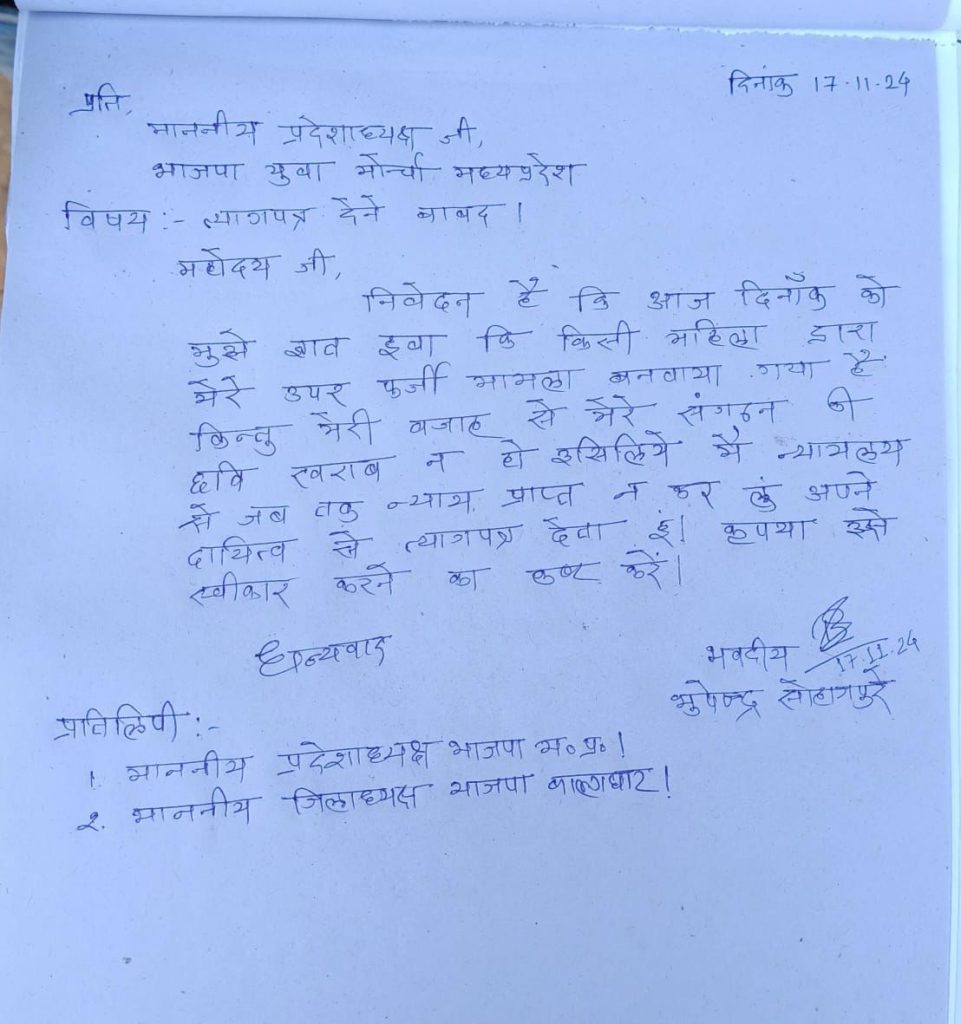 दिनांक 17.11.24
प्रति,
माननीय प्रदेशाध्यक्ष जी,
भाजपा युवा मोर्चा मध्यप्रदेश
विषय :- त्यागपत्र देने बाबद ।
महोदय जी,
निवेदन है कि आज दिनाँक को
मुझे ज्ञात हुवा कि किसी महिला द्वारा
मेरे उपर फर्जी मामला बनवाया गया है
किन्तु मेरी वजाह से मेरे संगठन की
छवि खराब न हो इसिलिये मै न्यायलय
से जब तक न्याय प्राप्त न कर लुं अपने
दायित्व से त्यागपत्र देता हुं। कृपया इसे
स्वीकार करने का कष्ट करें।
धन्यवाद
भवदीय
17.11.24
भुपेन्द्र सोहागपुरे
प्रतिलिपी :-
1. माननीय प्रदेशाध्यक्ष भाजपा म॰ प्र॰ ।
२. माननीय जिलाध्यक्ष भाजपा बालाघाट।